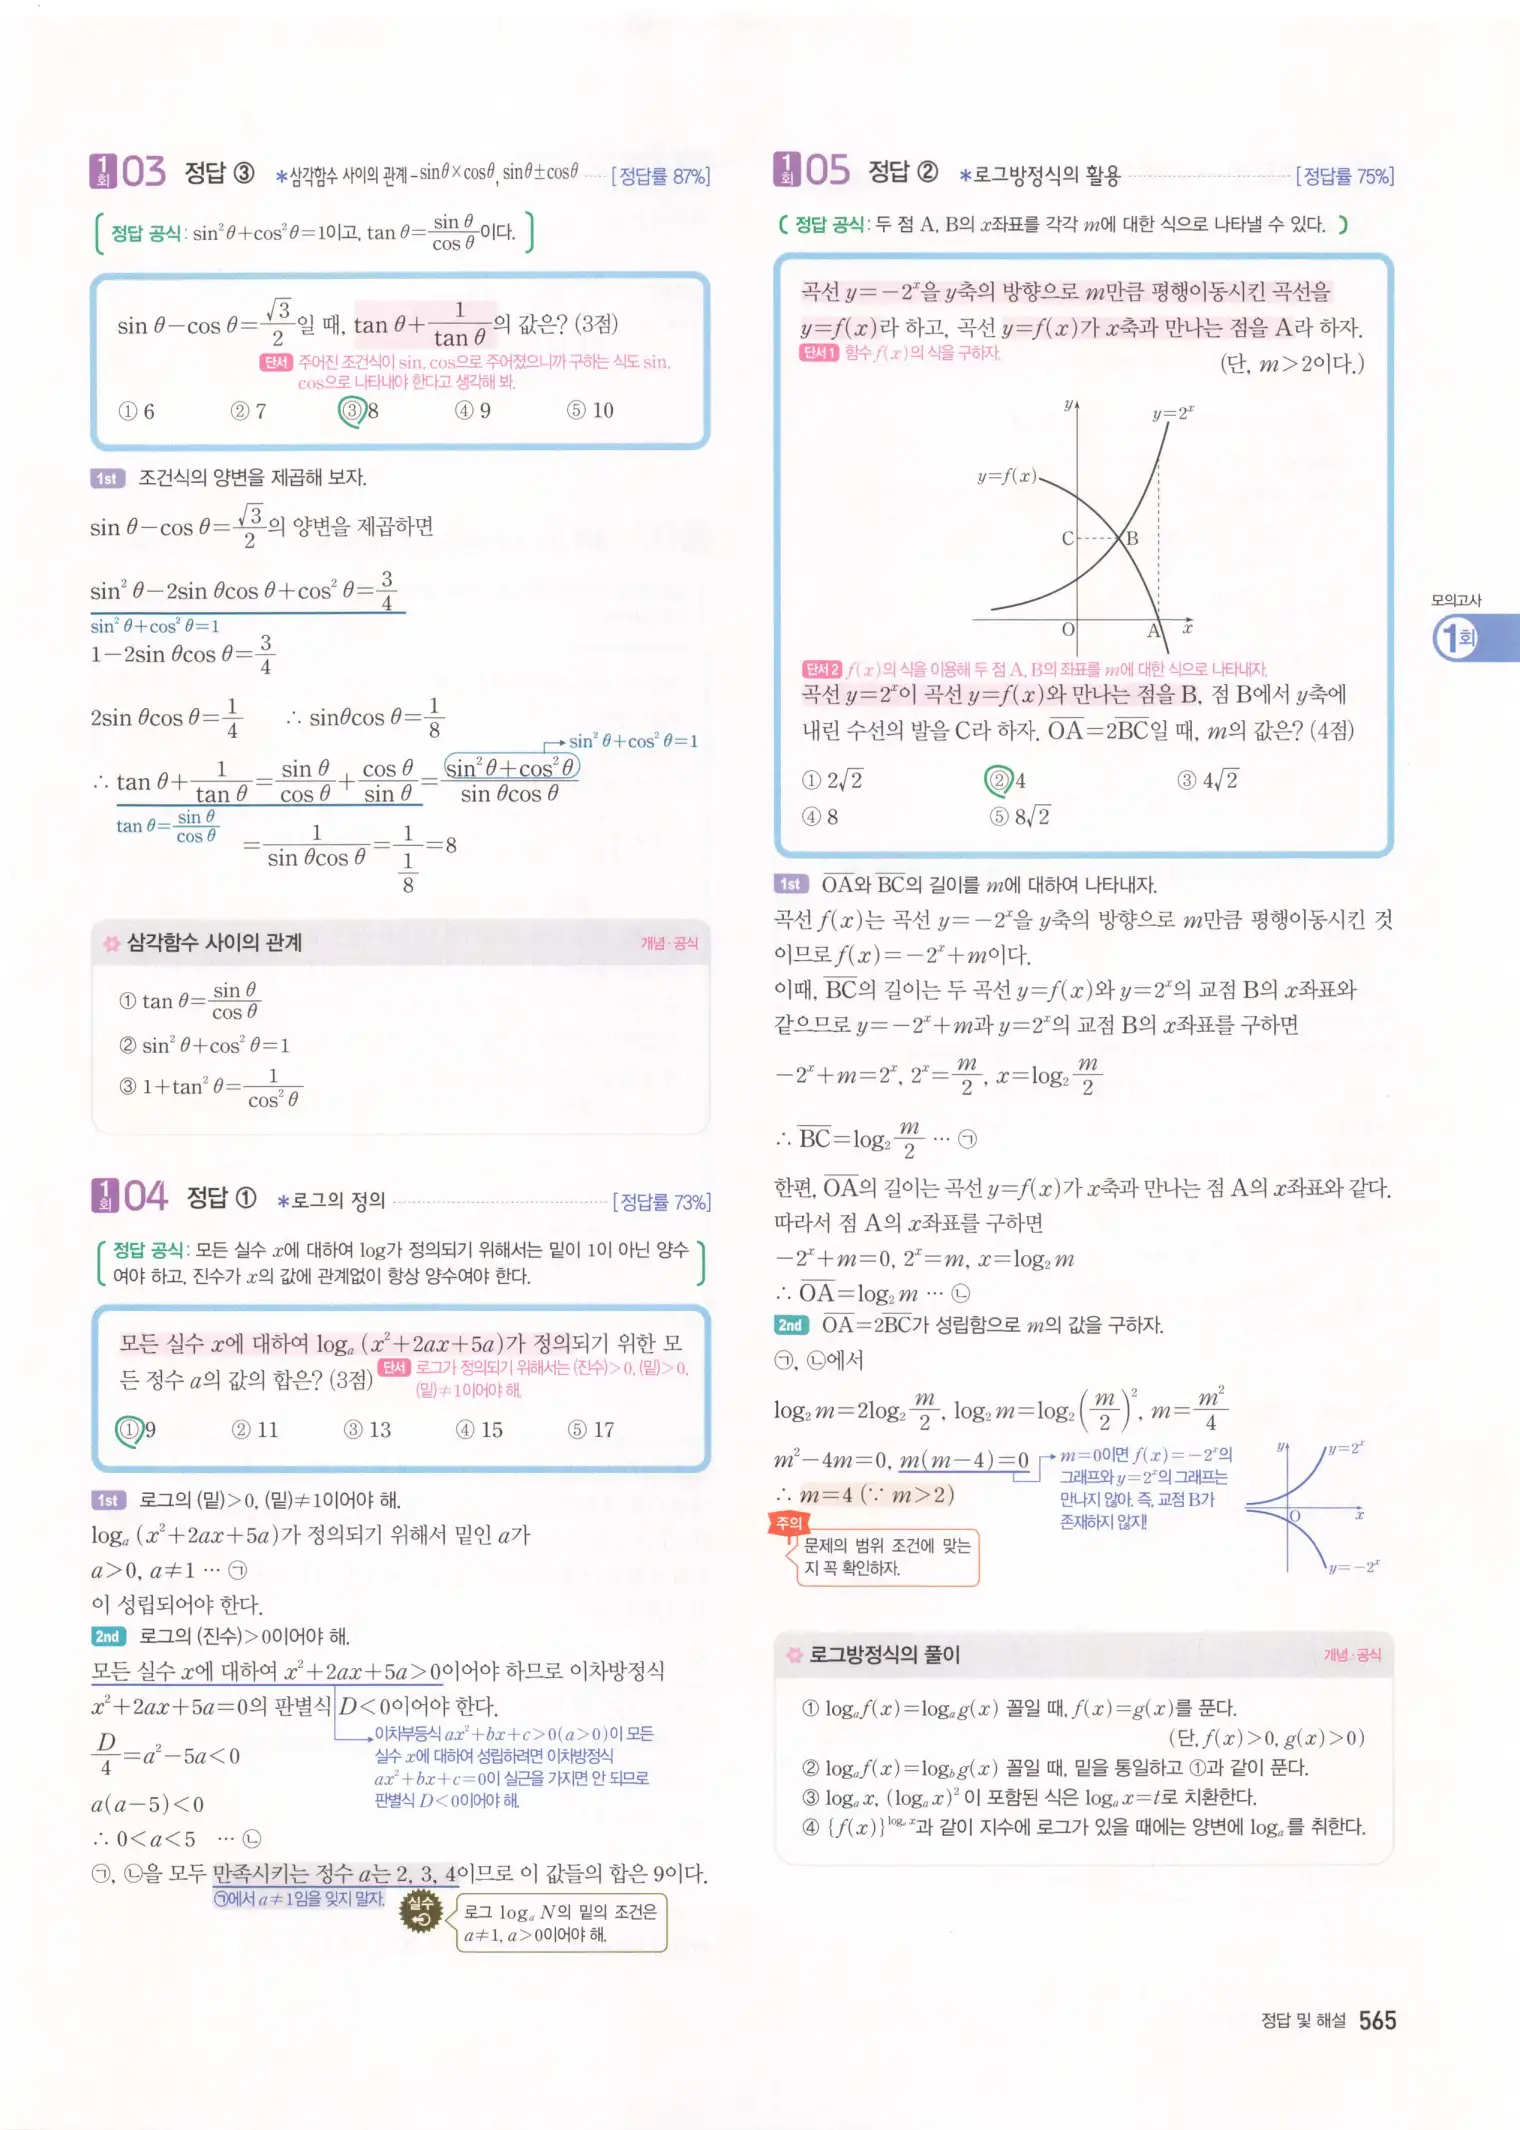 1회 03 정답 ③ *삼각함수 사이의 관계-sinθ×cosθ, sinθ±cosθ ····· [정답률 87%]
정답 공식: sin²θ+cos²θ=1이고, tan θ=sin θ/cos θ이다.
sin θ-cos θ=√3/2일 때, tan θ+1/tan θ의 값은? (3점)
단서 주어진 조건식이 sin, cos으로 주어졌으니까 구하는 식도 sin,
cos으로 나타내야 한다고 생각해 봐.
① 6 ② 7 ③ 8 ④ 9 ⑤ 10
1st 조건식의 양변을 제곱해 보자.
sin θ-cos θ=√3/2의 양변을 제곱하면
sin² θ-2sin θcos θ+cos² θ=3/4
sin² θ+cos² θ=1
1-2sin θcos θ=3/4
2sin θcos θ=1/4 ∴ sinθcos θ=1/8
sin² θ+cos² θ=1
∴ tan θ+1/tan θ=sin θ/cos θ+cos θ/sin θ=(sin² θ+cos² θ)/(sin θcos θ)
tan θ=sin θ/cos θ
=1/(sin θcos θ)=1/(1/8)=8
삼각함수 사이의 관계 개념·공식
① tan θ=sin θ/cos θ
② sin² θ+cos² θ=1
③ 1+tan² θ=1/cos² θ
1회 04 정답 ① *로그의 정의 ····· [정답률 73%]
정답 공식: 모든 실수 x에 대하여 log가 정의되기 위해서는 밑이 1이 아닌 양수
여야 하고, 진수가 x의 값에 관계없이 항상 양수여야 한다.
모든 실수 x에 대하여 logₐ (x²+2ax+5a)가 정의되기 위한 모
든 정수 a의 값의 합은? (3점) 단서 로그가 정의되기 위해서는 (진수)>0, (밑)>0,
(밑)≠1이어야 해.
① 9 ② 11 ③ 13 ④ 15 ⑤ 17
1st 로그의 (밑)>0, (밑)≠1이어야 해.
logₐ (x²+2ax+5a)가 정의되기 위해서 밑인 a가
a>0, a≠1 ··· ㉠
이 성립되어야 한다.
2nd 로그의 (진수)>0이어야 해.
모든 실수 x에 대하여 x²+2ax+5a>0이어야 하므로 이차방정식
x²+2ax+5a=0의 판별식 D<0이어야 한다.
이차부등식 ax²+bx+c>0(a>0)이 모든
실수 x에 대하여 성립하려면 이차방정식
ax²+bx+c=0이 실근을 가지면 안 되므로
판별식 D<0이어야 해.
D/4=a²-5a<0
a(a-5)<0
∴ 0<a<5 ··· ㉡
㉠, ㉡을 모두 만족시키는 정수 a는 2, 3, 4이므로 이 값들의 합은 9이다.
㉠에서 a≠1임을 잊지 말자.
실수
로그 logₐ N의 밑의 조건은
a≠1, a>0이어야 해.
1회 05 정답 ② *로그방정식의 활용 ····· [정답률 75%]
정답 공식: 두 점 A, B의 x좌표를 각각 m에 대한 식으로 나타낼 수 있다.
곡선 y=-2ˣ을 y축의 방향으로 m만큼 평행이동시킨 곡선을
y=f(x)라 하고, 곡선 y=f(x)가 x축과 만나는 점을 A라 하자.
단서1 함수 f(x)의 식을 구하자.
(단, m>2이다.)
y
y=2ˣ
y=f(x)
C B
O A x
단서2 f(x)의 식을 이용해 두 점 A, B의 좌표를 m에 대한 식으로 나타내자.
곡선 y=2ˣ이 곡선 y=f(x)와 만나는 점을 B, 점 B에서 y축에
내린 수선의 발을 C라 하자. OA=2BC일 때, m의 값은? (4점)
① 2√2 ② 4 ③ 4√2
④ 8 ⑤ 8√2
1st OA와 BC의 길이를 m에 대하여 나타내자.
곡선 f(x)는 곡선 y=-2ˣ을 y축의 방향으로 m만큼 평행이동시킨 것
이므로 f(x)=-2ˣ+m이다.
이때, BC의 길이는 두 곡선 y=f(x)와 y=2ˣ의 교점 B의 x좌표와
같으므로 y=-2ˣ+m과 y=2ˣ의 교점 B의 x좌표를 구하면
-2ˣ+m=2ˣ, 2ˣ=m/2, x=log₂ m/2
∴ BC=log₂ m/2 ··· ㉠
한편, OA의 길이는 곡선 y=f(x)가 x축과 만나는 점 A의 x좌표와 같다.
따라서 점 A의 x좌표를 구하면
-2ˣ+m=0, 2ˣ=m, x=log₂ m
∴ OA=log₂ m ··· ㉡
2nd OA=2BC가 성립함으로 m의 값을 구하자.
㉠, ㉡에서
log₂ m=2log₂ m/2, log₂ m=log₂(m/2)², m=m²/4
m²-4m=0, m(m-4)=0
∴ m=4 (∵ m>2)
m=0이면 f(x)=-2ˣ의
그래프와 y=2ˣ의 그래프는
만나지 않아. 즉, 교점 B가
존재하지 않지!
y y=2ˣ
O x
y=-2ˣ
주의
문제의 범위 조건에 맞는
지 꼭 확인하자.
로그방정식의 풀이 개념·공식
① logₐf(x)=logₐg(x) 꼴일 때, f(x)=g(x)를 푼다.
(단, f(x)>0, g(x)>0)
② logₐf(x)=log_b g(x) 꼴일 때, 밑을 통일하고 ①과 같이 푼다.
③ logₐ x, (logₐ x)²이 포함된 식은 logₐ x=t로 치환한다.
④ {f(x)}^(logₐ x)과 같이 지수에 로그가 있을 때에는 양변에 logₐ를 취한다.
모의고사
1회
정답 및 해설 565